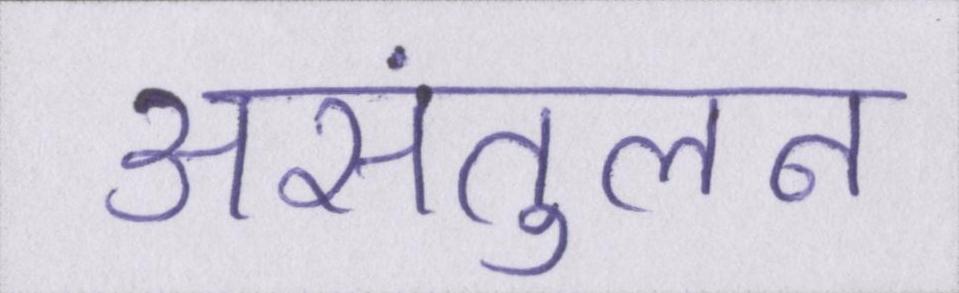 असंतुलन